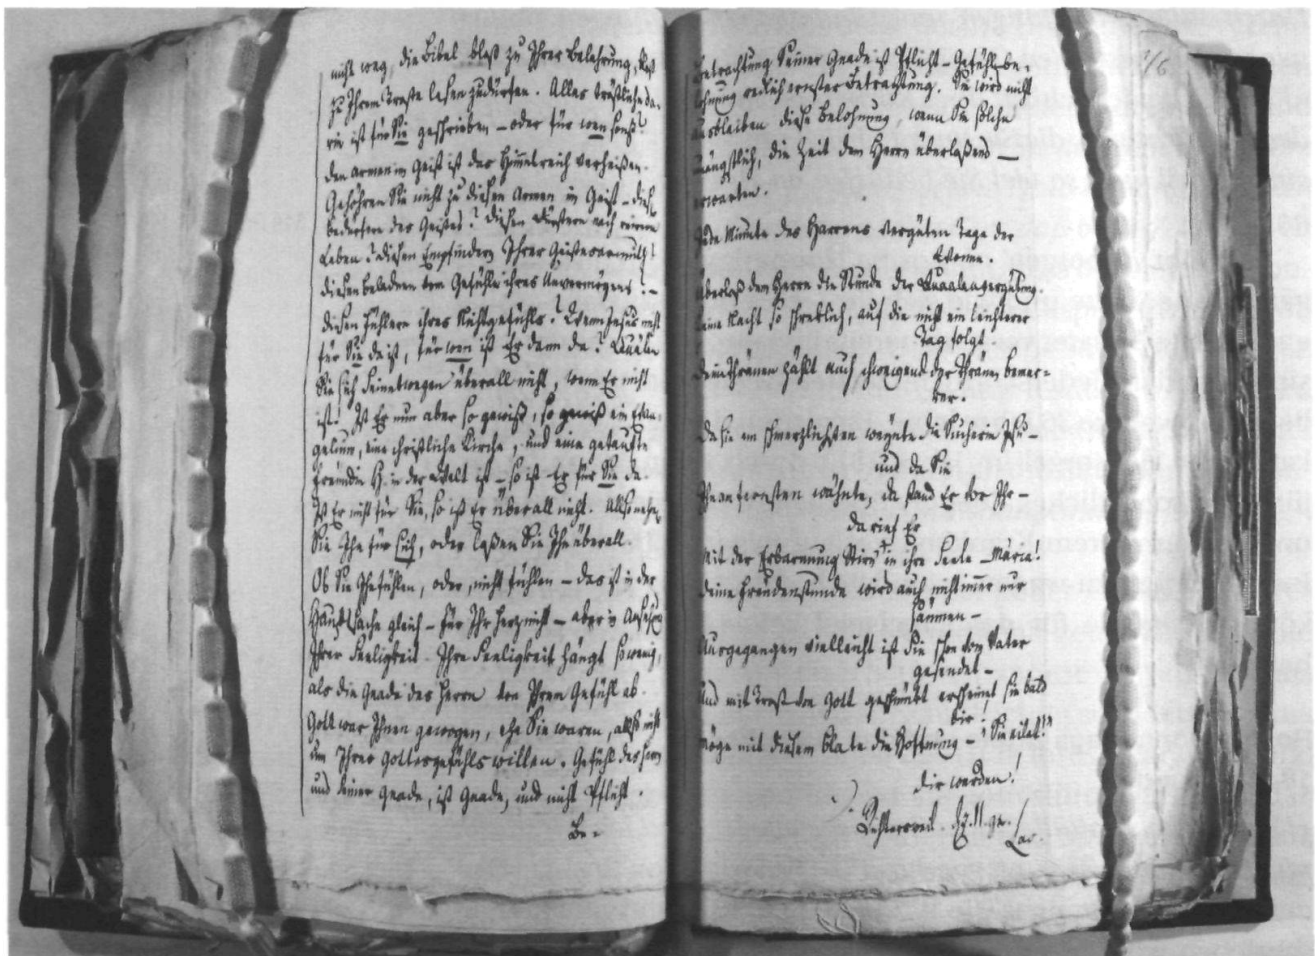 nicht weg, die Bibel bloß zu Ihrer Belehrung, bloß
zu Ihrem Troste lesen zudürfen. Alles tröstliche da-
rin ist für Sie geschrieben – oder für wen sonst?
den armen im Geist ist das Himmelreich verheißen.
Gehöhren Sie nicht zu diesen Armen in Geist – diesen
bedürfern des Geistes? diesen Dürstern nach reinem
Leben? diesen Empfindern Ihrer Geistesarmuth?
diesen beladnen vom Gefühle ihres Unvermögens? –
diesen Fühlern ihres Nichtgefühls? Wenn Jesus nicht
für Sie da ist, für wen ist Er denn da? Quälen
Sie sich seinetwegen überall nicht, wenn Er nicht
ist! Ist Er nun aber so gewiß, so gewiß ein Evan-
gelium, eine christliche Kirche, und eine getaufte
Freündin H. in der Welt ist – so ist Er für Sie da.
Ist Er nicht für Sie, so ist Er überall nicht. Also nehmen
Sie Ihn für sich, oder laßen Sie Ihn überall.
Ob Sie Ihn fühlen, oder nicht fühlen – das ist in der
Hauptsache gleich – für Ihr Herz nicht – aber in Ansehung
Ihrer Seeligkeit. Ihre Seeligkeit hängt so wenig,
als die Gnade des Herrn von Ihrem Gefühl ab.
Gott war Ihnen gewogen, ehe Sie waren, also nicht
um Ihres Gottesgefühls willen. Gefühl des Herrn
und seiner Gnade, ist Gnade, und nicht Pflicht.
Be-
Betrachtung Seiner Gnade ist Pflicht – Gefühl Be-
lohnung redlich ernster Betrachtung. Sie wird nicht
ausbleiben diese Belohnung, wenn Sie solche
unängstlich, die Zeit dem Herrn überlaßend –
erwarten.
Jede Minute des Harrens vergüten Tage der
Wonne.
Überlaß dem Herrn die Stunde der Quaalenvergütung.
Keine Nacht so schreklich, auf die nicht ein leichterer
Tag folgt.
Deine Thränen zählt auch schweigend der Thränen bemer-
ker.
Da sie am schmerzlichsten weynte die Sucherin Jesu –
und da Sie
Ihn am fernsten wähnte, da stand Er vor Ihr –
da rief Er
Mit der Erbarmung Stimme in ihre Seele Maria!
Deine Freüdenstunde wird auch nicht immer nur
säumen –
Ausgegangen vielleicht ist sie schon vom Vater
gesendet –
Und mit Trost von Gott geschmükt erscheint sie bald
dir;
Möge mit diesem Blate die Hoffnung – „Sie eilet!“
dir werden!
Lav.
1/6